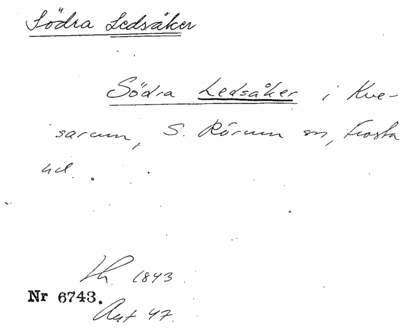 Södra Ledsåker
Södra Ledsåker i Kve-
sarum, S. Rörum sn, Frosta
hd.
Lh. 1843.
Nr 6743.
Ant 47.